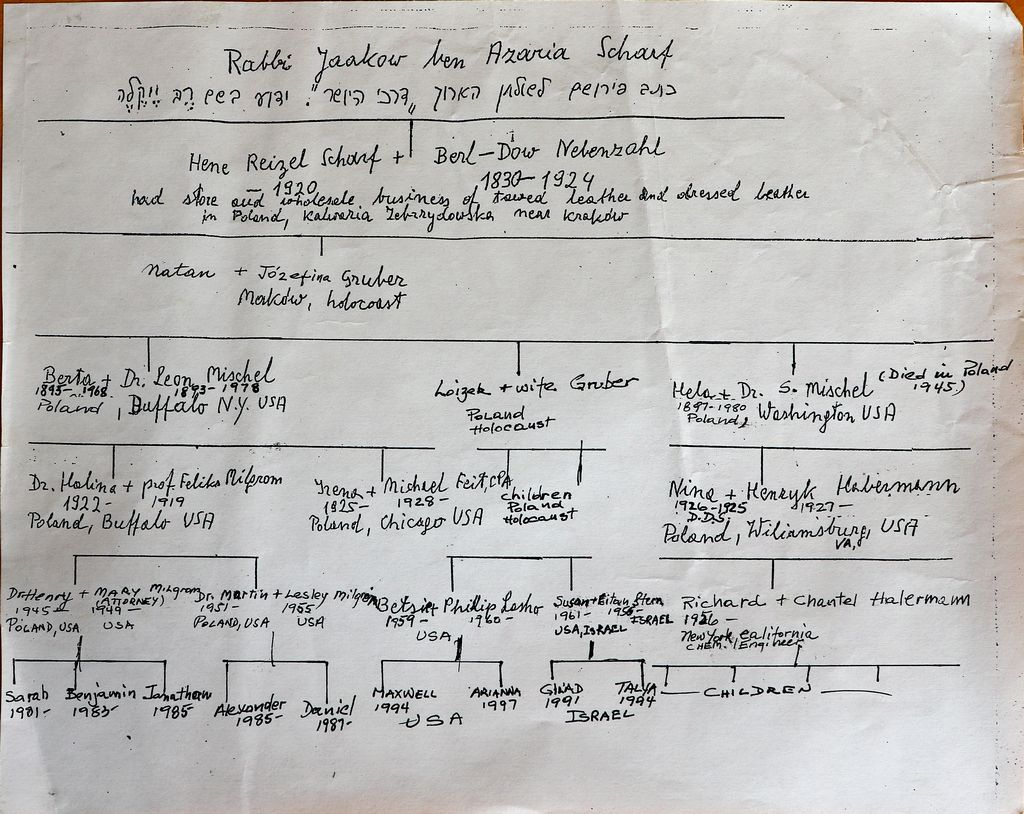 Rabbi Jaakow ben Azaria Scharf
כתב פירושים לשולחן הארוך "דרכי היושר". ידוע בשם רב
Hene Reizel Scharf + Berl-Dow Nebenzahl
- 1920 1830-1924
had store and wholesale business of tawed leather and dressed leather
in Poland, Kalwaria Zebrzydowska near Kraków
Natan + Józefina Gruber
Maków, holocoast
Berta + Dr. Leon Mischel
1895-1968 1893-1978
Poland, Buffalo N.Y. USA
Loizek + wife Gruber
Poland
Holocaust
Hela + Dr. S. Mischel (Died in Poland 1945)
1897-1980
Poland, Washington USA
Dr. Halina + prof. Feliks Milgrom
1922- 1919
Poland, Buffalo USA
Irena + Michael Feit, CPA
1925- 1928-
Poland, Chicago USA
Children
Poland
Holocaust
Nina + Henryk Habermann
1926-1925 1927-
D.D.S.
Poland, Wiliamsburg, USA
VA,
Dr Henry + MARY Milgrom
(ATTORNEY)
1945- 1949-
POLAND, USA USA
Dr. Martin + Lesley Milgrom
1951- 1955
POLAND, USA USA
Betsie + Phillip Lesko
1959- 1960-
USA
Susan + Eitan Stern
1961- 1956-
USA, ISRAEL ISRAEL
Richard + Chantel Halermann
1956-
New York California
CHEM. Engineer
Sarah Benjamin Jonathan
1981- 1983- 1985
Alexander Daniel
1985- 1987-
MAXWELL ARIANNA
1994 1997
USA
GINAD TALYA
1991 1994
ISRAEL
CHILDREN